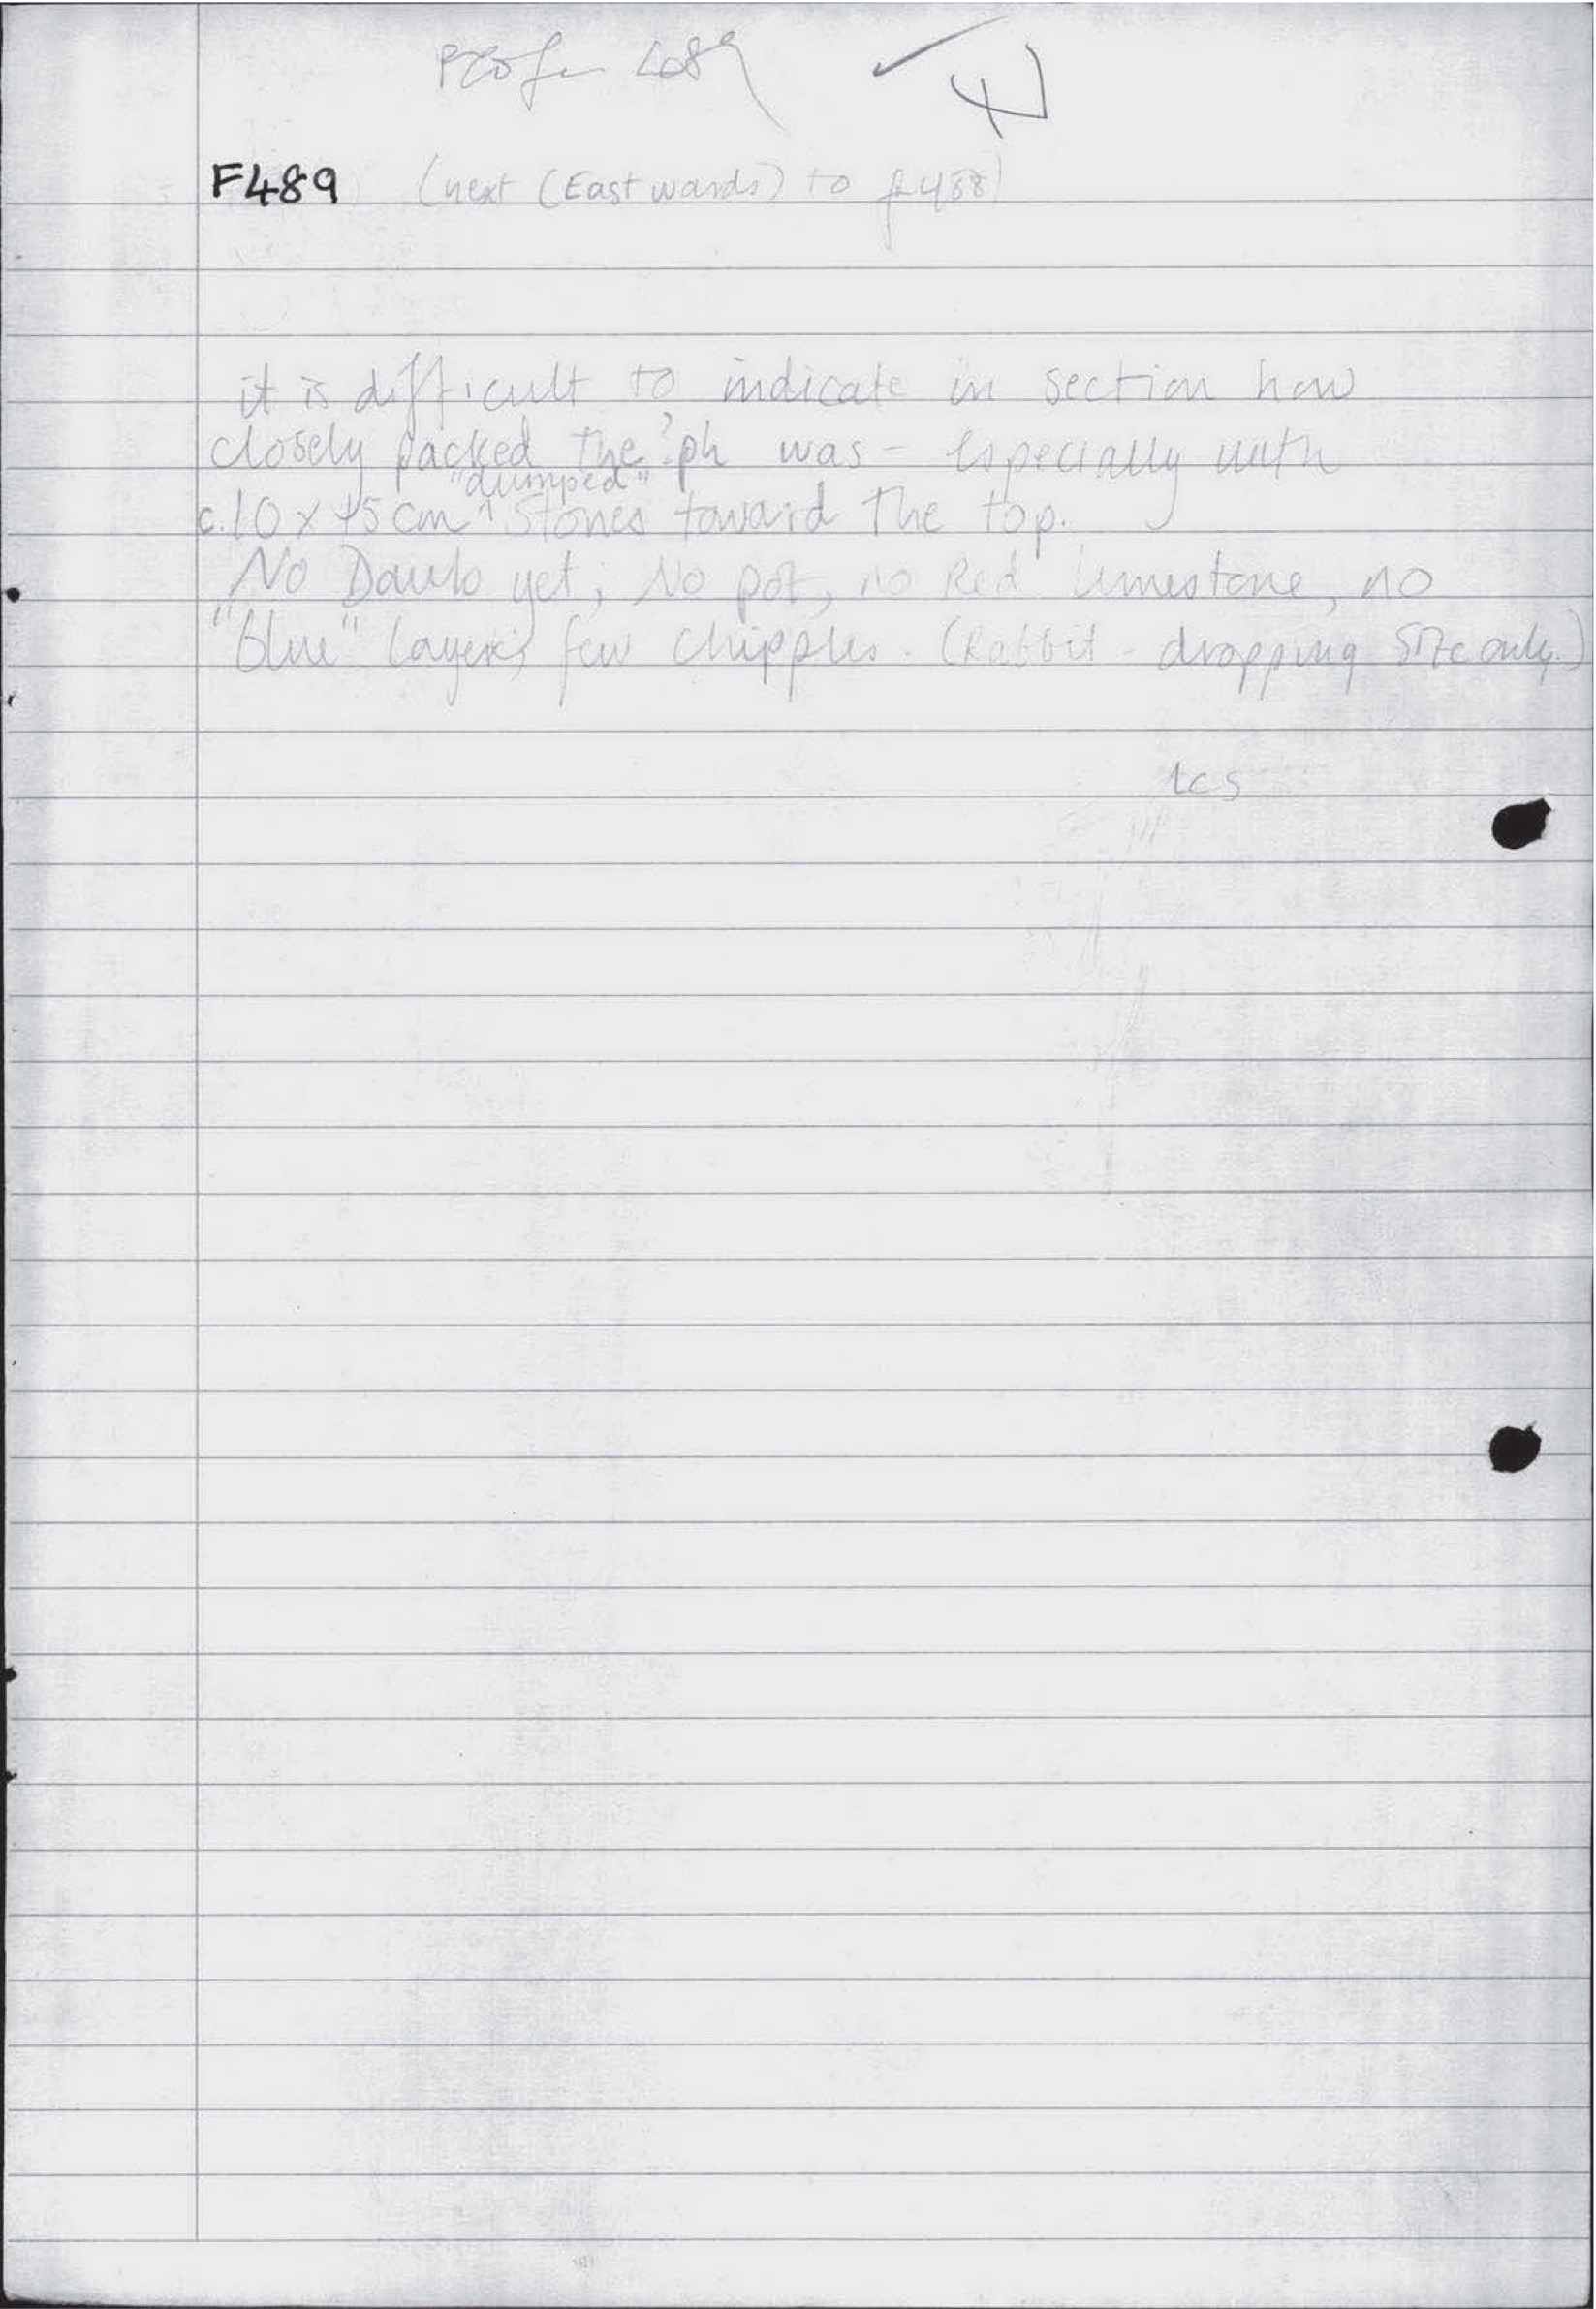 F489 (next (Eastwards) to f488)
it is difficult to indicate in section how
closely packed the ?ph was - especially with
"dumped"
c.10 x 15cm ^ Stones toward the top.
No Daub yet; No pot, no Red limestone, no
"blue" layers, few chipples. (Rabbit-dropping size only.)
tcs